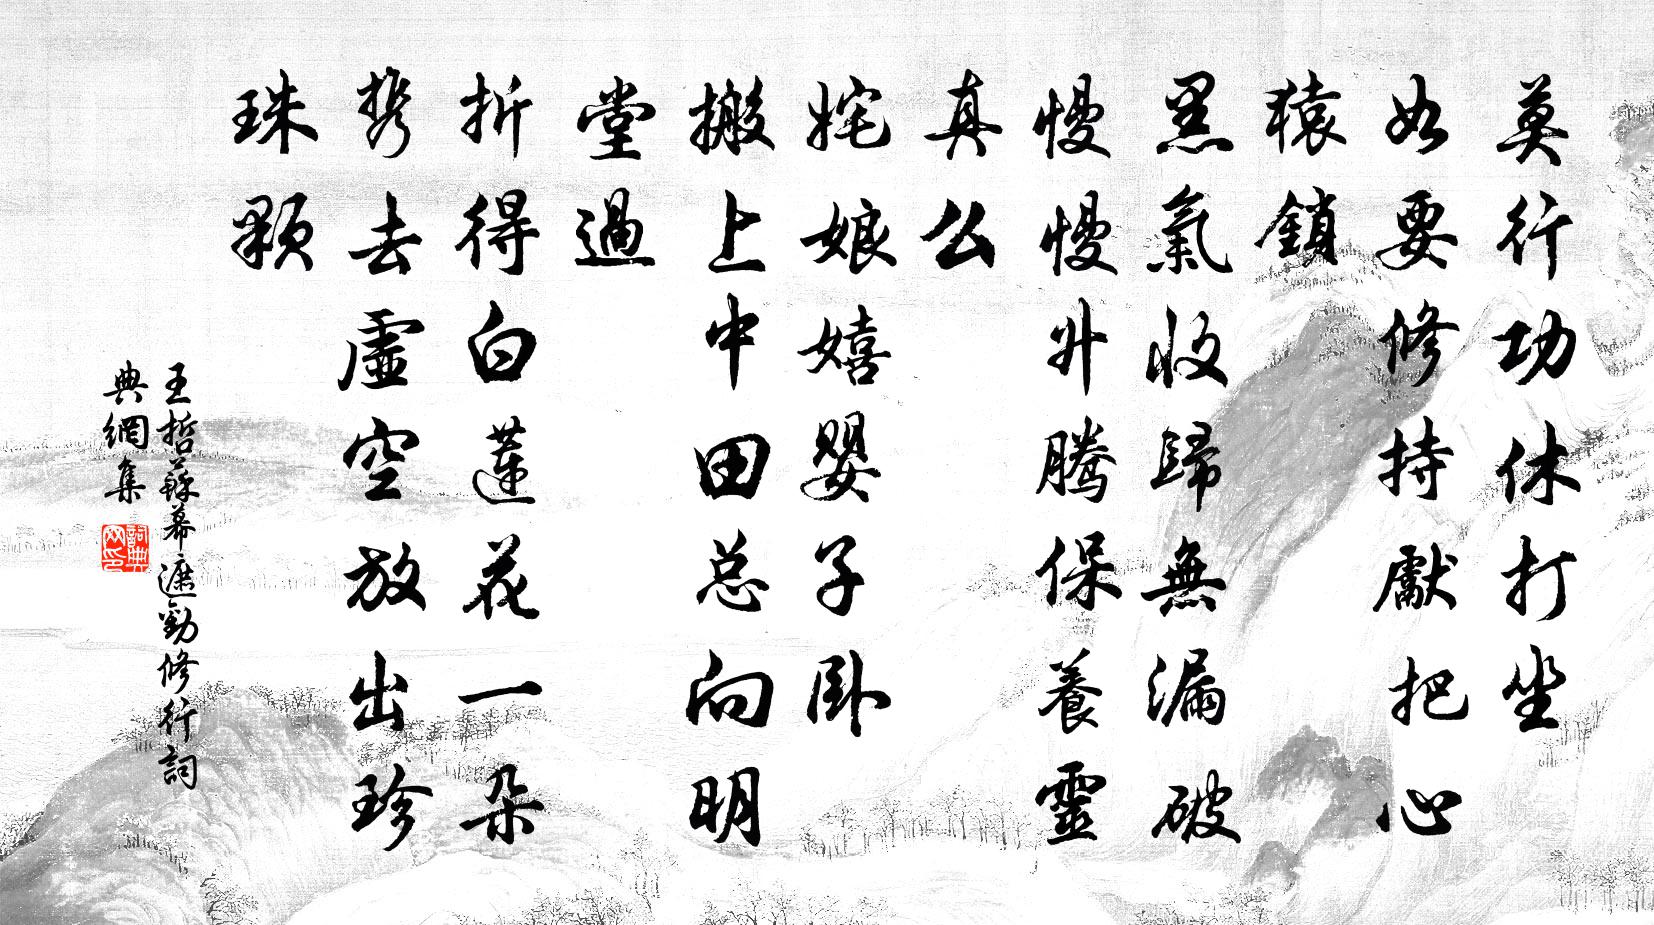 莫行功休打坐
如要修持獻把心
猿鎖
黑氣收歸無漏破
慢慢升騰保養靈
真么
姹娘嬉嬰子卧
搬上中田总向明
堂過
折得白蓮花一朵
携去虛空放出珍
珠顆
王哲蘇幕遮勸修行詞
典網集
詞典網印